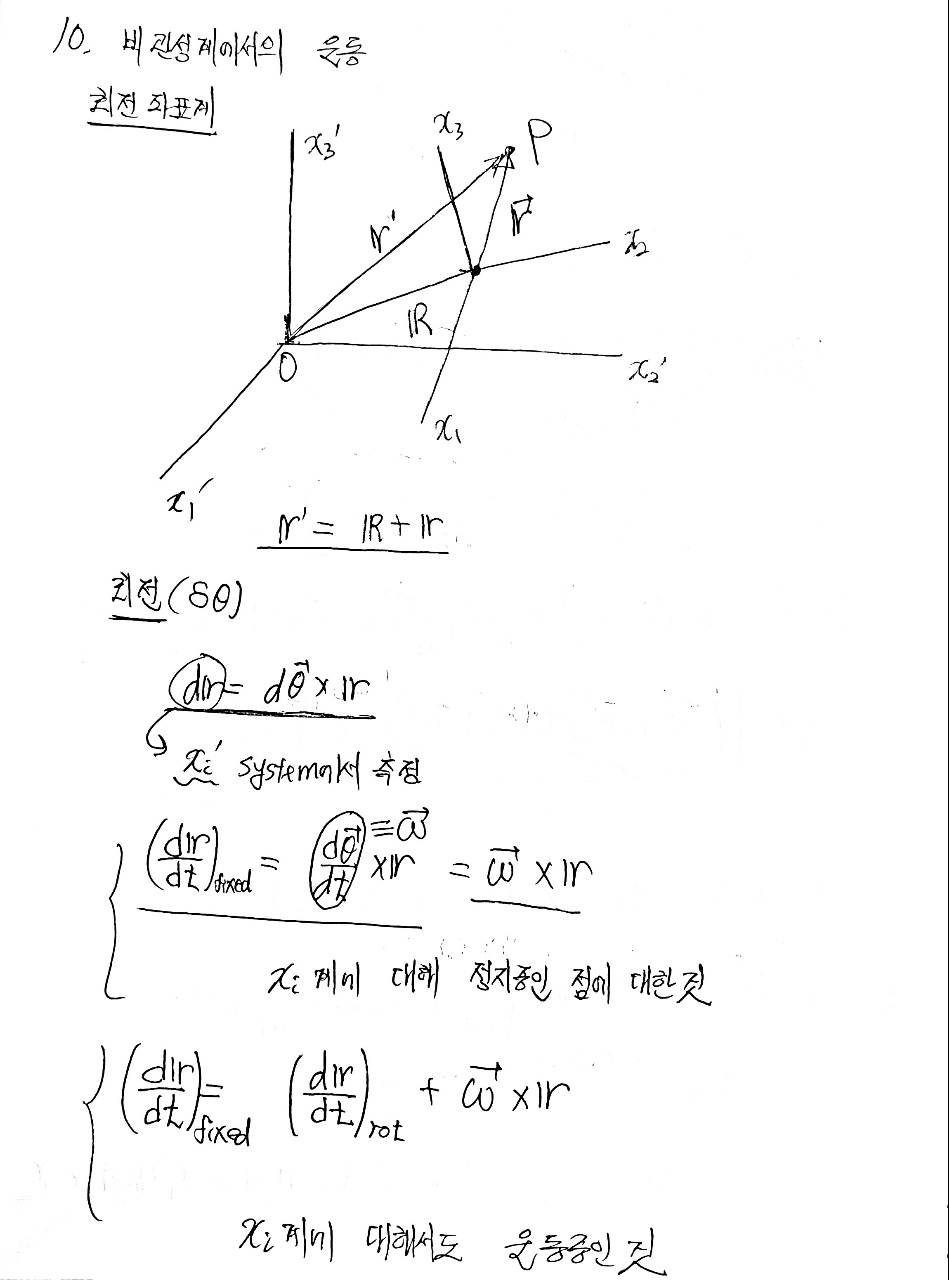 10. 비관성계에서의 운동
회전 좌표계
x₃′
x₃
P
r′
r⃗
x₂
R
O
x₂′
x₁
x₁′
r′ = R + r
회전 (δθ)
dr = dθ⃗ × r
xᵢ′ system에서 측정
(dr/dt)fixed = dθ⃗/dt × r ≡ ω⃗ = ω⃗ × r
xᵢ 계에 대해 정지중인 점에 대한 것
(dr/dt)fixed = (dr/dt)rot + ω⃗ × r
xᵢ 계에 대해서도 운동중인 것